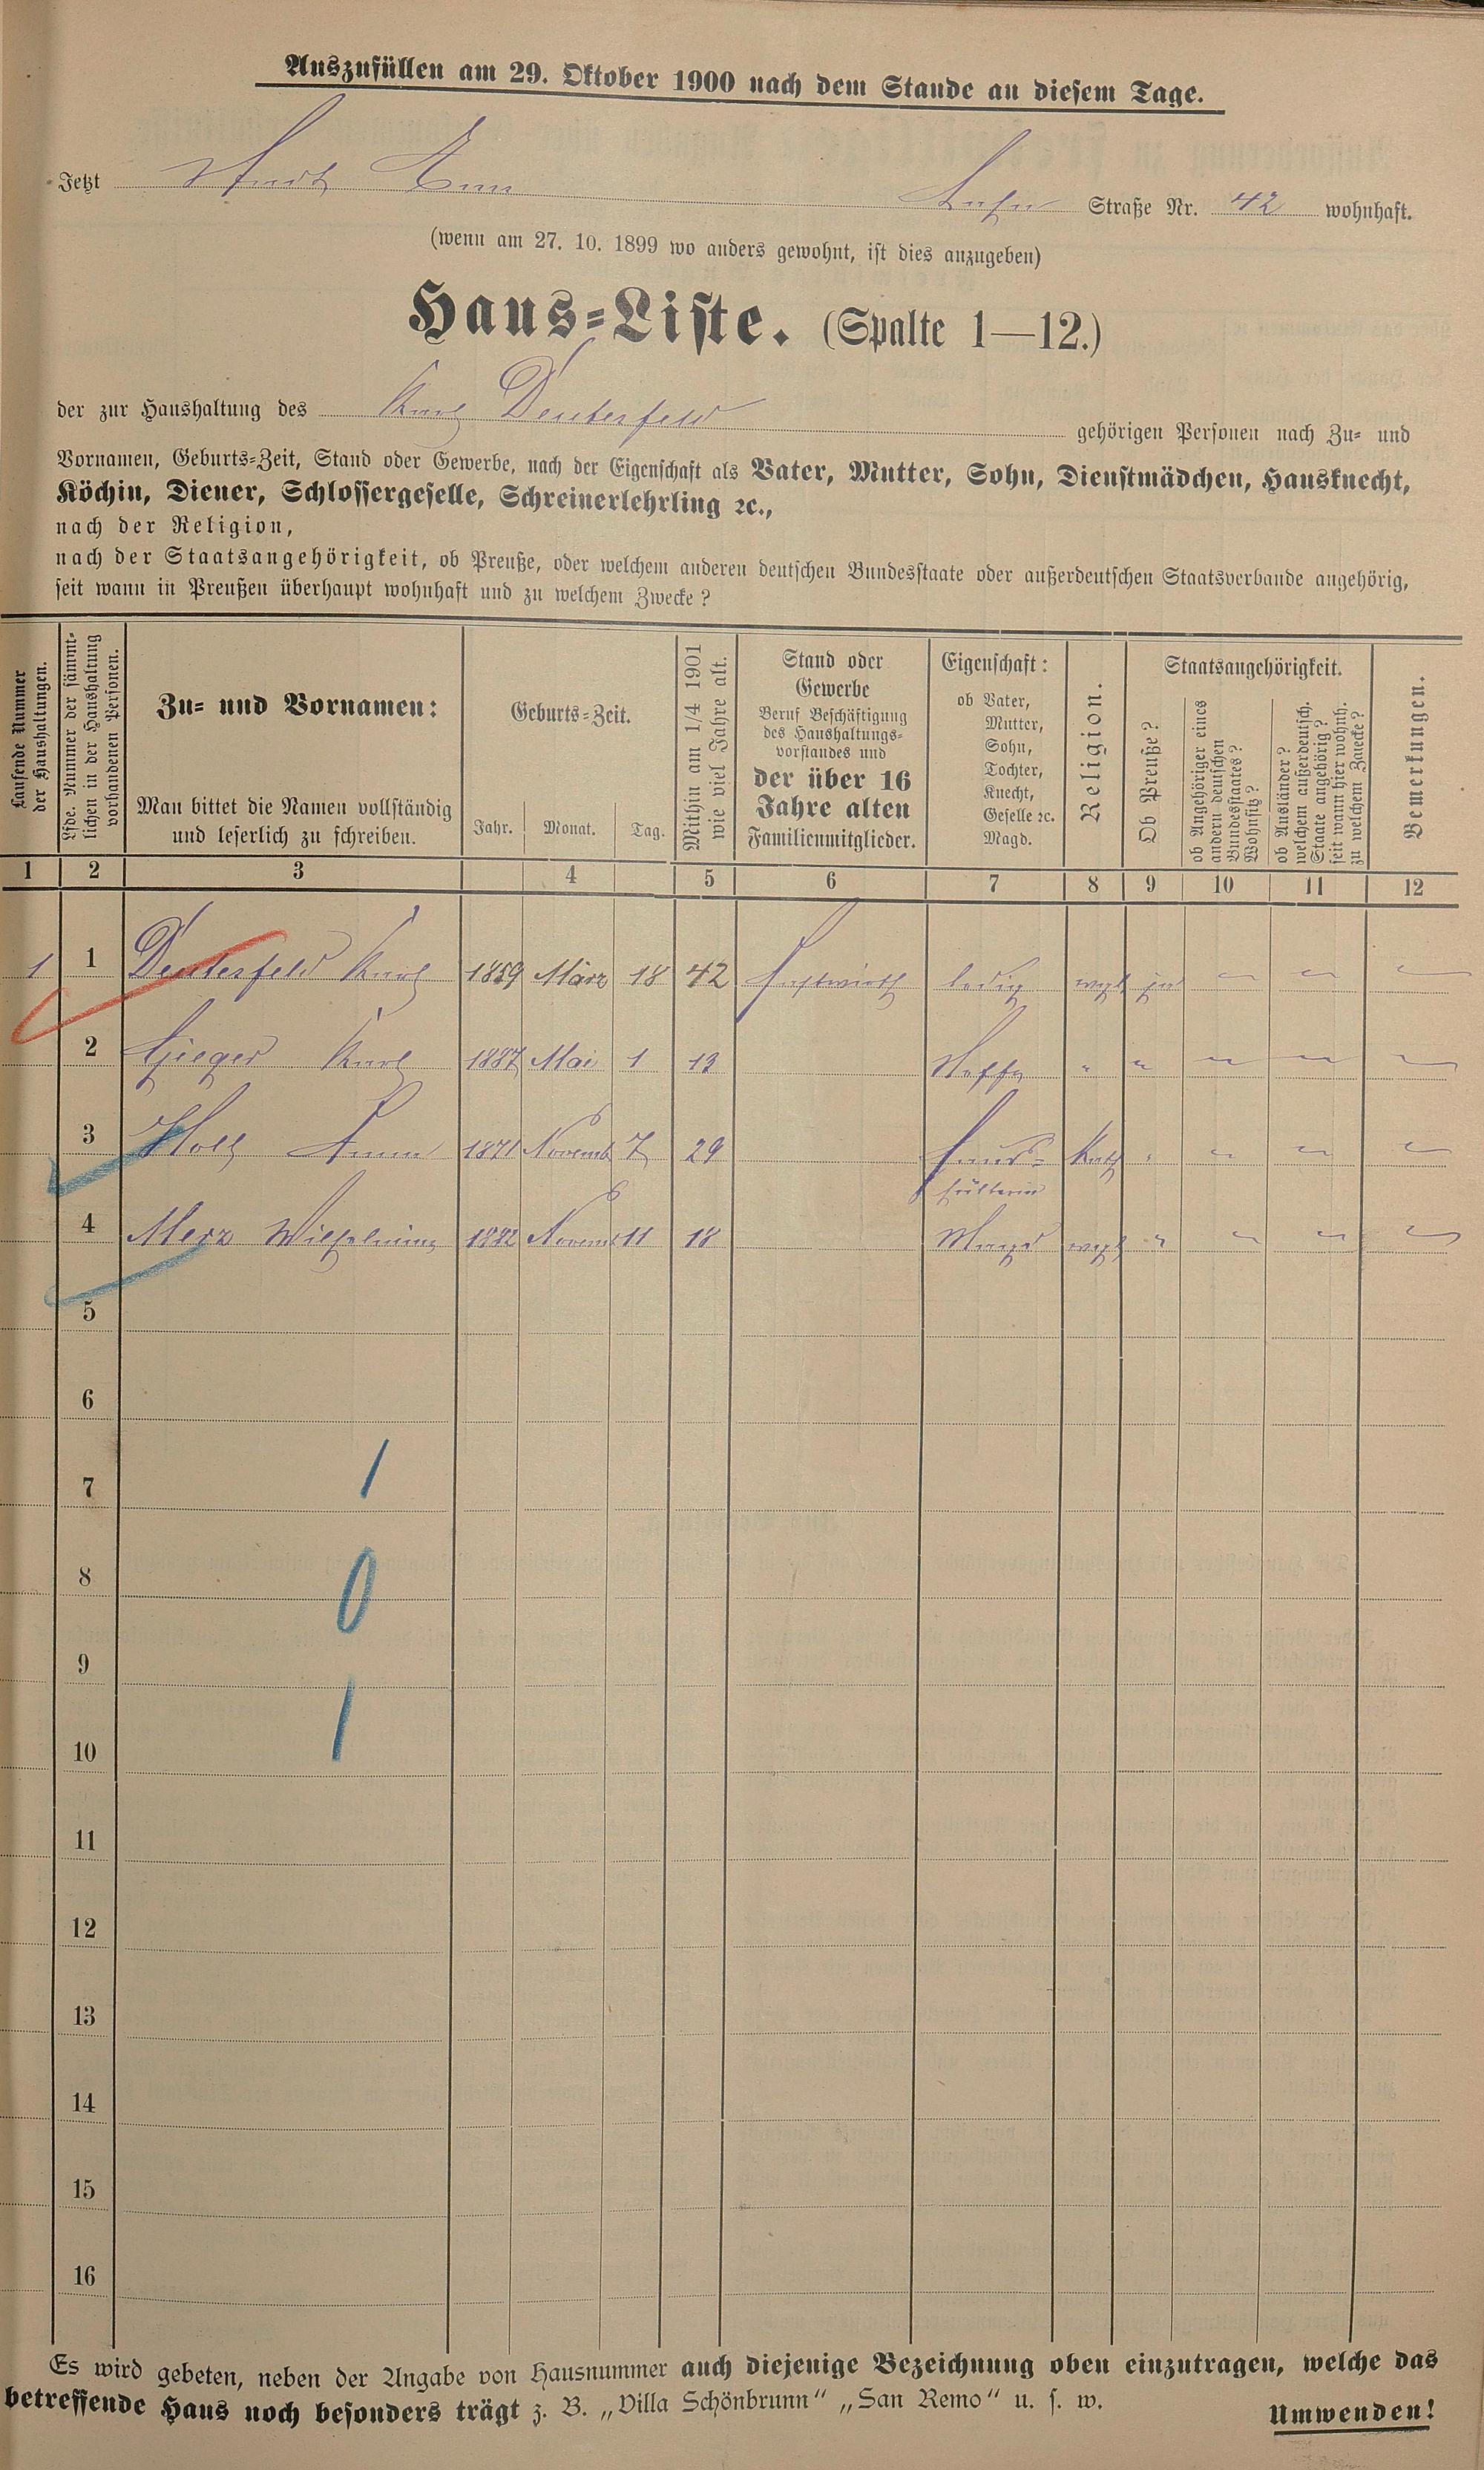 Auszufüllen am 29. Oktober 1900 nach dem Stande an diesem Tage.
Jetzt Stadt Ems Lahn Straße Nr. 42 wohnhaft.
(wenn am 27. 10. 1899 wo anders gewohnt, ist dies anzugeben)
Haus-Liste. (Spalte 1—12.)
der zur Haushaltung des Karl Deuterfeld gehörigen Personen nach Zu- und
Vornamen, Geburts-Zeit, Stand oder Gewerbe, nach der Eigenschaft als Vater, Mutter, Sohn, Dienstmädchen, Hausknecht,
Köchin, Diener, Schlossergeselle, Schreinerlehrling ꝛc.,
nach der Religion,
nach der Staatsangehörigkeit, ob Preuße, oder welchem anderen deutschen Bundesstaate oder außerdeutschen Staatsverbande angehörig,
seit wann in Preußen überhaupt wohnhaft und zu welchem Zwecke?
Laufende Nummer
der Haushaltungen.
Lfde. Nummer der sämmt-
lichen in der Haushaltung
vorhandenen Personen.
Zu- und Vornamen:
Man bittet die Namen vollständig
und leserlich zu schreiben.
Geburts-Zeit.
Jahr. Monat. Tag.
Mithin am 1/4 1901
wie viel Jahre alt.
Stand oder
Gewerbe
Beruf Beschäftigung
des Haushaltungs-
vorstandes und
der über 16
Jahre alten
Familienmitglieder.
Eigenschaft:
ob Vater,
Mutter,
Sohn,
Tochter,
Knecht,
Geselle ꝛc.
Magd.
Religion.
Staatsangehörigkeit.
Ob Preuße?
ob Angehöriger eines
andern deutschen
Bundesstaates?
Wohnsitz?
ob Ausländer?
welchem außerdeutsch.
Staate angehörig?
seit wann hier wohnh.
zu welchem Zwecke?
Bemerkungen.
1 2 3 4 5 6 7 8 9 10 11 12
1 1 Deuterfeld Karl 1859 März 18 42 Gastwirth ledig evgl ja
2 Gieger Karl 1887 Mai 1 13 Neffe " "
3 Holl Anna 1871 Novemb 7 29 Haus- Kath "
hälterin
4 Merz Wilhelmine 1882 Novemb 11 18 Magd evgl "
5
6
7 1
8 0
9
10 1
11
12
13
14
15
16
Es wird gebeten, neben der Angabe von Hausnummer auch diejenige Bezeichnung oben einzutragen, welche das
betreffende Haus noch besonders trägt z. B. „Villa Schönbrunn“ „San Remo“ u. s. w.
Umwenden!